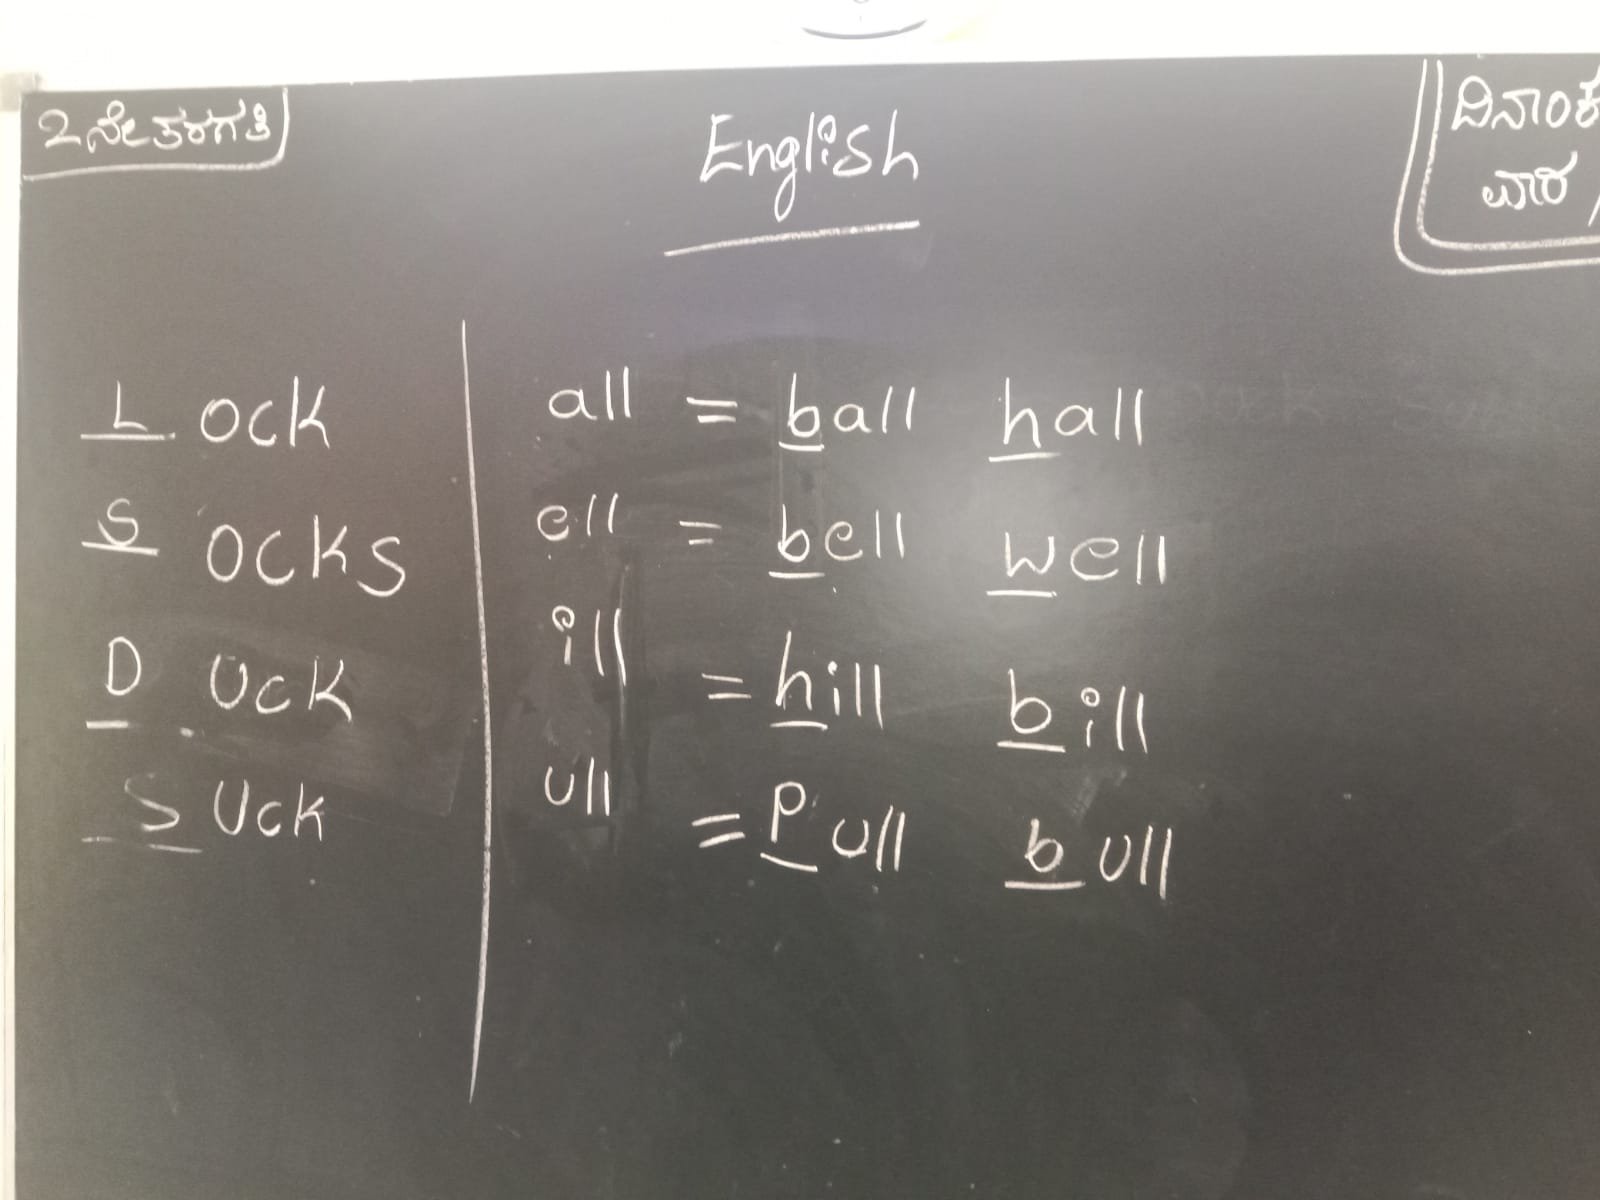 2ನೇ ತರಗತಿ
English
ದಿನಾಂಕ
ವಾರ
L ock
S ocks
D uck
S uck
all = ball hall
ell = bell well
ill = hill bill
ull = Pull bull